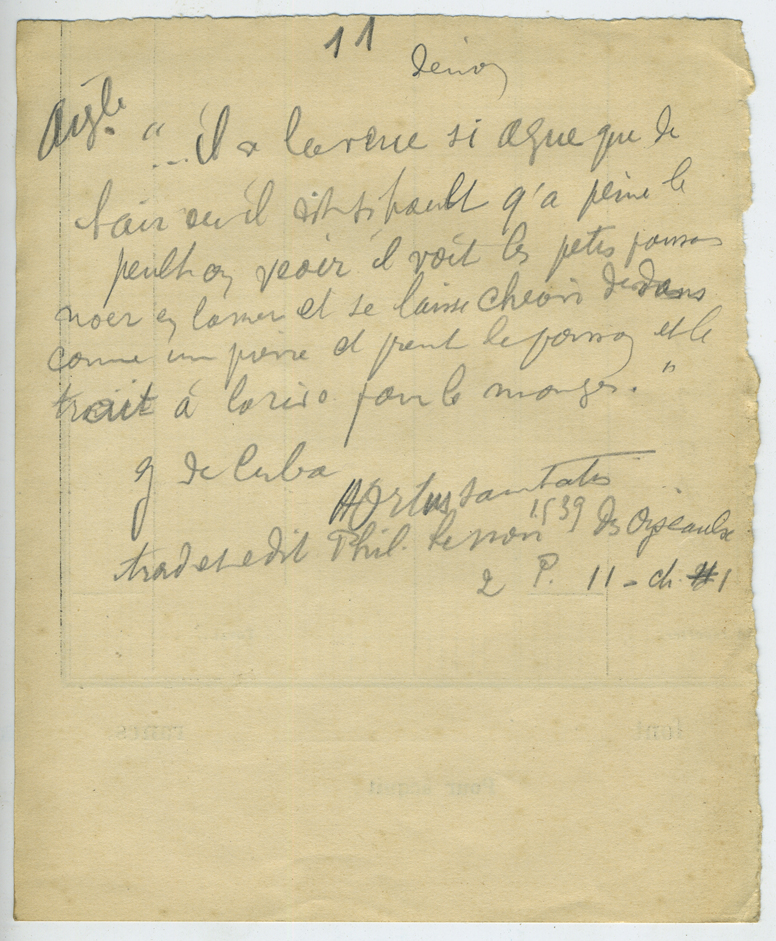 11
Aigle
"...il a la veue si ague que de
lair ou il est si hault q'a peine le
peult on veoir il voit les petis poissons
noer en la mer et se laisse cheoir dedans
comme une pierre et prent le poisson et le
trait à la rive pour le manger."
J de Cuba
Hortus sanitatis
trad et edit Phil. Le Noir 1539 Des Oyseaulx
2 P. 11 - ch. 1